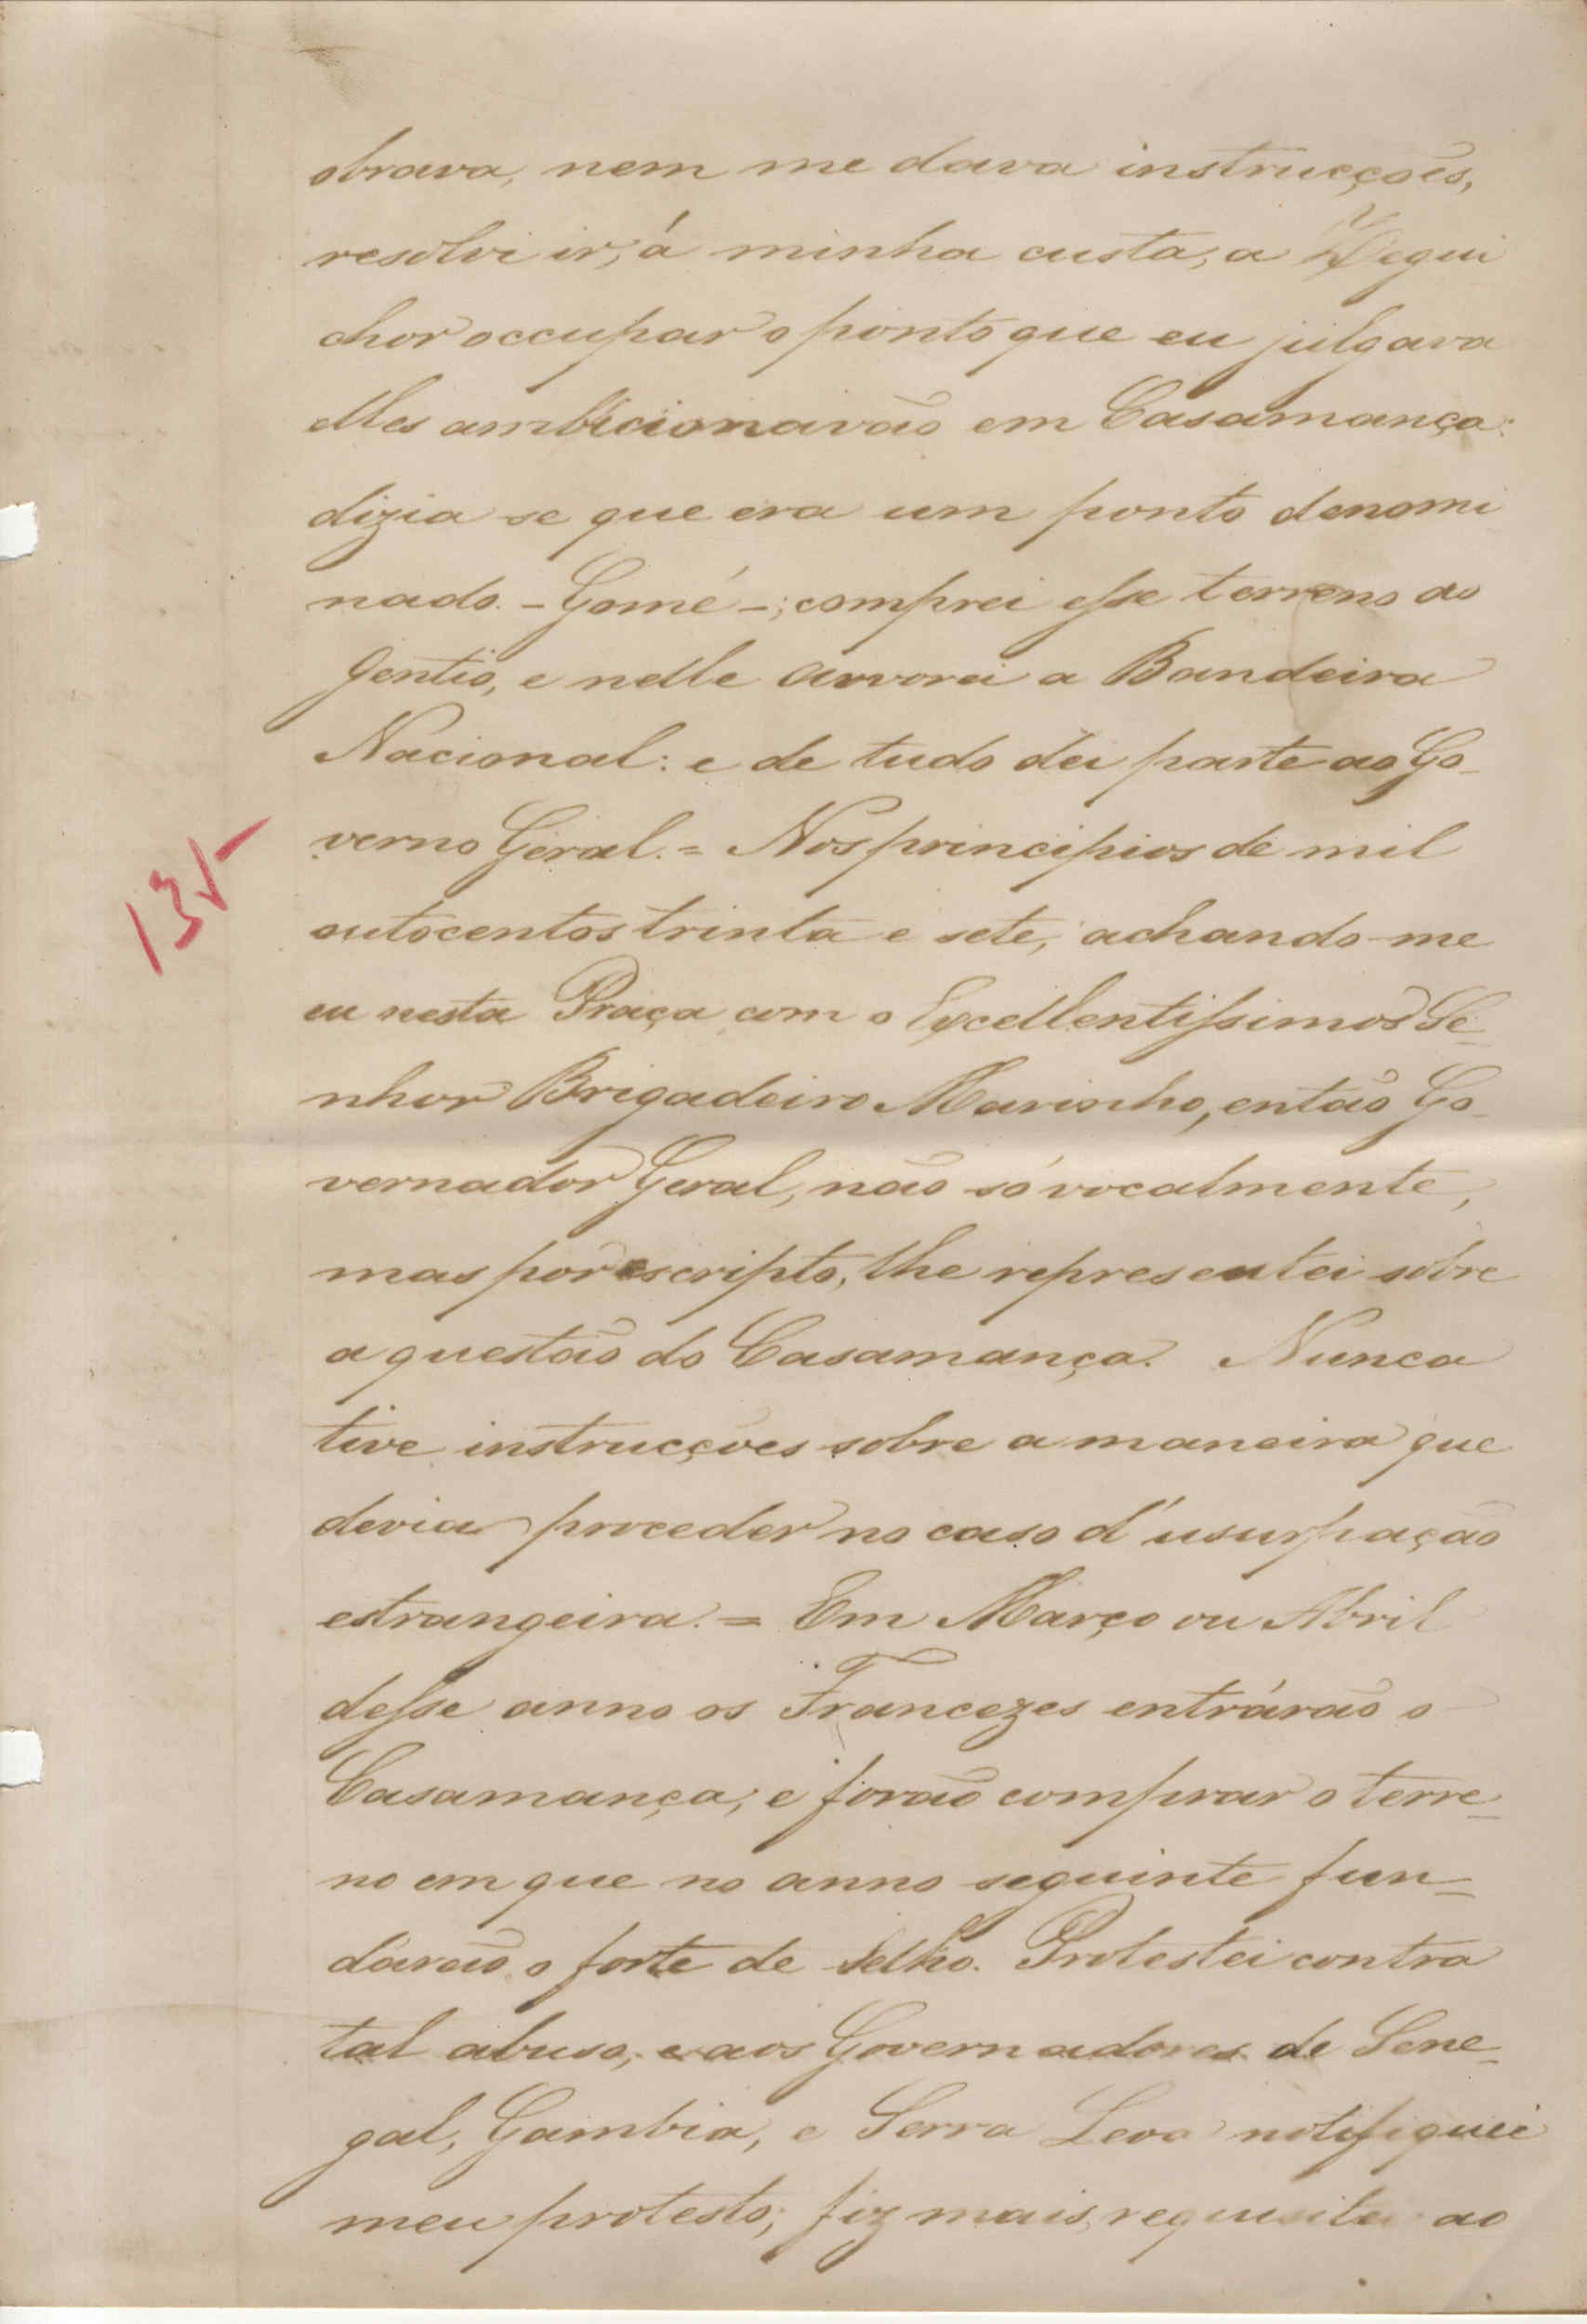 obrava, nem me dava instrucções,
resolvi ir, á minha custa, a Segui
chor occupar o ponto que eu julgava
elles ambicionavão em Casamança:
dizia se que era um ponto denomi
nado. - Gomé -; comprei esse terreno ao
Gentio, e nelle arvorei a Bandeira
Nacional: e de tudo dei parte ao Go-
verno Geral. = Nos principios de mil
oitocentos trinta e sete, achando-me
eu nesta Praça com o Excellentissimo Se-
nhor Brigadeiro Marinho, então Go-
vernador Geral, não só vocalmente,
mas por escripto, lhe representei sobre
a questão do Casamança. Nunca
tive instrucções sobre a maneira que
devia proceder no caso d'usurpação
estrangeira. = Em Março ou Abril
desse anno os Francezes entrárão o
Casamança, e forão comprar o terre-
no em que no anno seguinte fun-
dárão o forte de Selho. Protestei contra
tal abuso, e aos Governadores de Sene-
gal, Gambia, e Serra Leoa notifiquei
meu protesto; fiz mais, requisitei ao
135